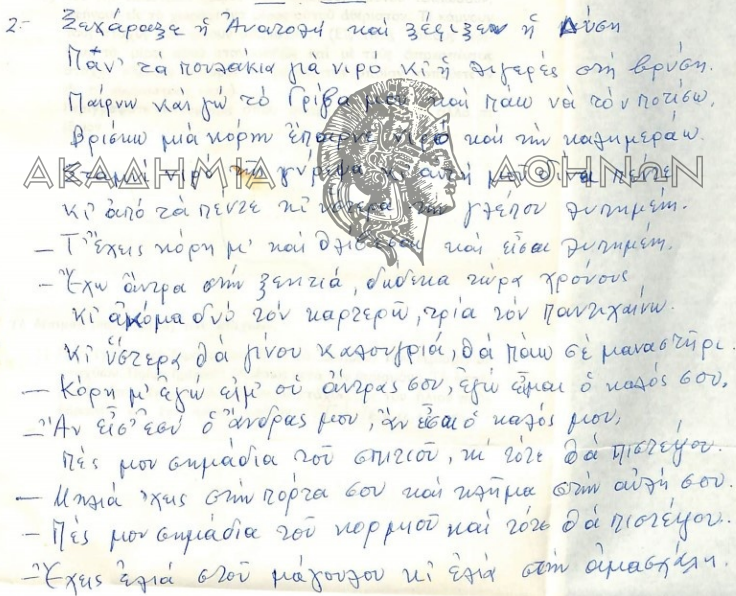 2.- Ξεχάραξε ἡ Ἀνατολή καί ξέφιξεν ἡ Δύση
Πᾶν' τά πουλάκια γιά νιρό κι ἡ λιγερές στή βρύση.
Παίρνω καί γώ τό Γρίβα μου καί πάω νά τόν ποτίσω,
Βρίσκω μιά κόρην ἔπαιρνε νιρό καί τήν καλημεράω.
ΑΚΑΔΗΜΙΑ ΑΘΗΝΩΝ
Σταμνί νιρό τήν γύριψα κι αὐτή μου δίνει πέντε
κι ἀπό τά πέντε κι ὕστερα τήν γλέπου θυπημέν.
— Τ' ἔχεις κόρη μ' καί θλίβεσαι καί εἶσαι θυπημέν.
— Ἔχω ἄντρα στήν ξενιτιά, δώδεκα τώρα χρόνους
κι ἀκόμα δυό τόν καρτερῶ, τρία τόν παντιχαίνω.
κι ὕστερα θά γίνου καλουγριά, θά πάω σέ μαναστῆρι.
— Κόρη μ' ἐγώ εἶμ' οὑ ἄντρας σου, ἐγώ εἶμαι ὁ καλός σου,
— Ἄν εἶσ' ἐσύ ὁ ἄνδρας μου, ἄν εἶσαι ὁ καλός μου,
πές μου σημάδια τοῦ σπιτιοῦ, κι τότε θά πιστέψου.
— Μηλιά 'χεις στήν πόρτα σου καί κλῆμα στήν αὐλή σου.
— Πές μου σημάδια τοῦ κορμιοῦ καί τότε θά πιστέψου.
— Ἔχεις ἐλιά στοῦ μάγουλου κι ἐλιά στήν ἀμασχάλη.